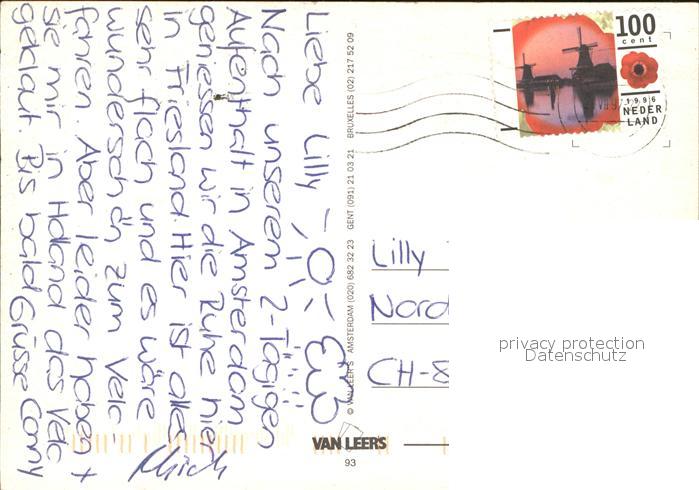 Liebe Lilly
Nach unserem 2-Tägigen
Aufenthalt in Amsterdam
geniessen wir die Ruhe hier
in Friesland. Hier ist alles
sehr flach und es wäre
wunderschön zum Velo
fahren. Aber leider haben +
sie mir in Holland das Velo
geklaut. Bis bald Grüsse Conny
© VAN LEER'S AMSTERDAM (020) 682 32 23 GENT (091) 21 03 21 BRUXELLES (02) 217 52 09
VAN LEER'S
93
100
cent
1996
NEDER
LAND
Lilly
Nord
CH-8
privacy protection
Datenschutz